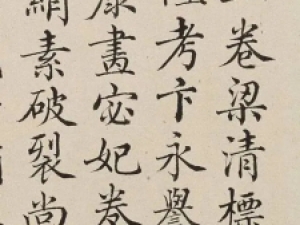 卷梁清標
考卞永譽
康畫宓妃卷
絹素破裂尚